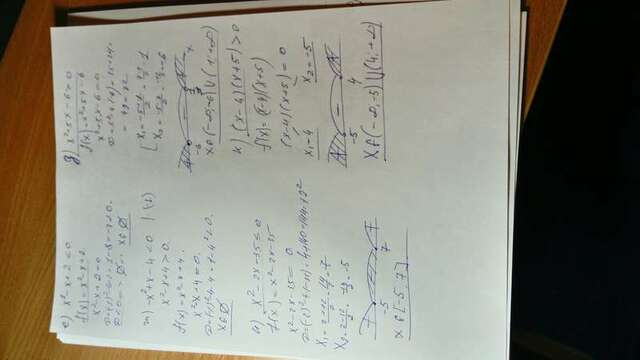 e) x²-x+2<0
f(x)=x²-x+2
x²-x+2=0
D<0 => ∅ x∈∅
m) -x²+x-4<0 |·(-1)
x²-x+4>0
f(x)=x²-x+4
x²-x+4=0
x∈∅
u) x²-2x-35≤0
f(x)=x²-2x-35
x²-2x-35=0
D=(-2)²-4·(-35)=4+140=144=12²
x₁=2+12/2=14/2=7
x₂=2-12/2=-10/2=-5
+ - +
-5 7
x∈[-5,7]
g) x²+5x-6>0
f(x)=x²+5x-6
x²+5x-6=0
D=5²-4·(-6)=25+24=
=49=7²
x₁=-5+7/2=2/2=1
x₂=-5-7/2=-12/2=-6
-6 1 x
x∈(-∞,-6)∪(1,+∞)
k) (x-4)(x+5)>0
f(x)=(x-4)(x+5)
(x-4)(x+5)=0
x₁=4 x₂=-5
-5 4
x∈(-∞,-5)∪(4,+∞)